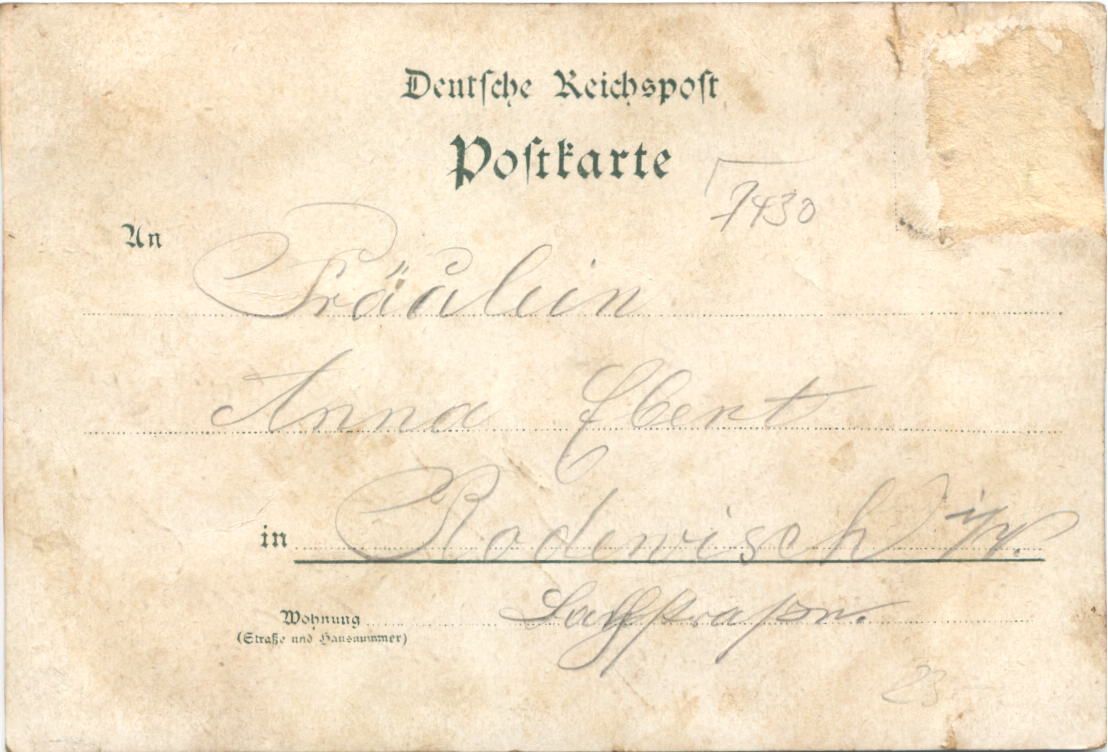 Deutsche Reichspost
Postkarte
7430
An Fräulein
Anna Ebert
in Rodewisch i/V.
Wohnung
(Straße und Hausnummer)
23